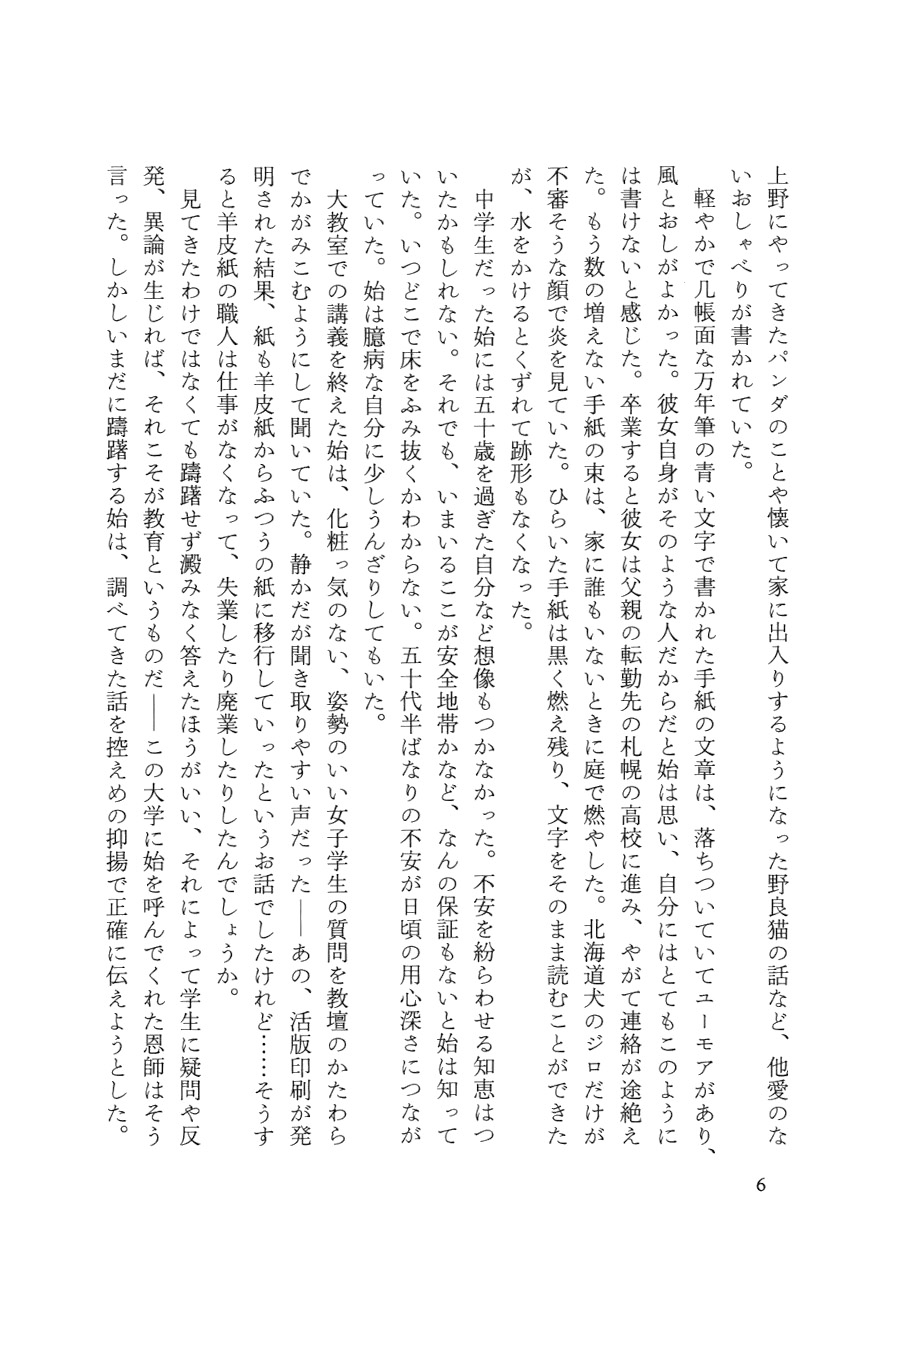 上野にやってきたパンダのことや懐いて家に出入りするようになった野良猫の話など、他愛のな
いおしゃべりが書かれていた。
　軽やかで几帳面な万年筆の青い文字で書かれた手紙の文章は、落ちついていてユーモアがあり、
風とおしがよかった。彼女自身がそのような人だからだと始は思い、自分にはとてもこのように
は書けないと感じた。卒業すると彼女は父親の転勤先の札幌の高校に進み、やがて連絡が途絶え
た。もう数の増えない手紙の束は、家に誰もいないときに庭で燃やした。北海道犬のジロだけが
不審そうな顔で炎を見ていた。ひらいた手紙は黒く燃え残り、文字をそのまま読むことができた
が、水をかけるとくずれて跡形もなくなった。
　中学生だった始には五十歳を過ぎた自分など想像もつかなかった。不安を紛らわせる知恵はつ
いたかもしれない。それでも、いまいるここが安全地帯かなど、なんの保証もないと始は知って
いた。いつどこで床をふみ抜くかわからない。五十代半ばなりの不安が日頃の用心深さにつなが
っていた。始は臆病な自分に少しうんざりしてもいた。
　大教室での講義を終えた始は、化粧っ気のない、姿勢のいい女子学生の質問を教壇のかたわら
でかがみこむようにして聞いていた。静かだが聞き取りやすい声だった――あの、活版印刷が発
明された結果、紙も羊皮紙からふつうの紙に移行していったというお話でしたけれど……そうす
ると羊皮紙の職人は仕事がなくなって、失業したり廃業したりしたんでしょうか。
　見てきたわけではなくても躊躇せず澱みなく答えたほうがいい、それによって学生に疑問や反
発、異論が生じれば、それこそが教育というものだ――この大学に始を呼んでくれた恩師はそう
言った。しかしいまだに躊躇する始は、調べてきた話を控えめの抑揚で正確に伝えようとした。
6